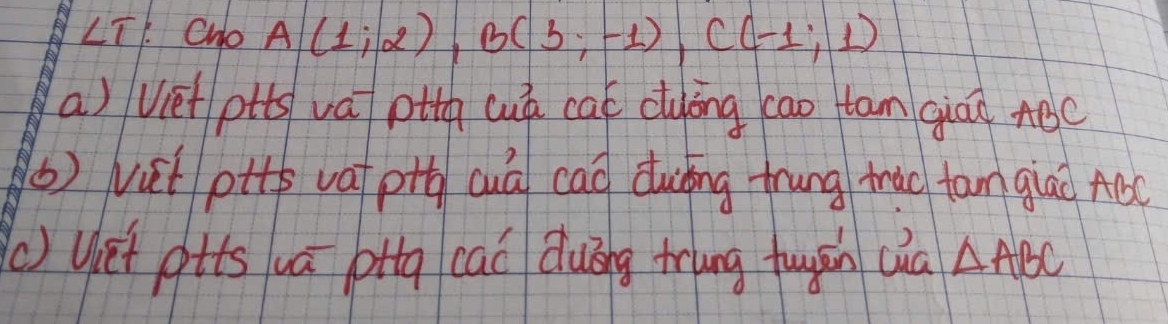 LT: Cho A(1;2), B(3;-1), C(-1;1)
a) Viết ptts và pttq của các đường cao tam giác ABC
b) Viết ptts và pttq của các đường trung trực tam giác ABC
c) Viết ptts và pttq các đường trung tuyến của ΔABC